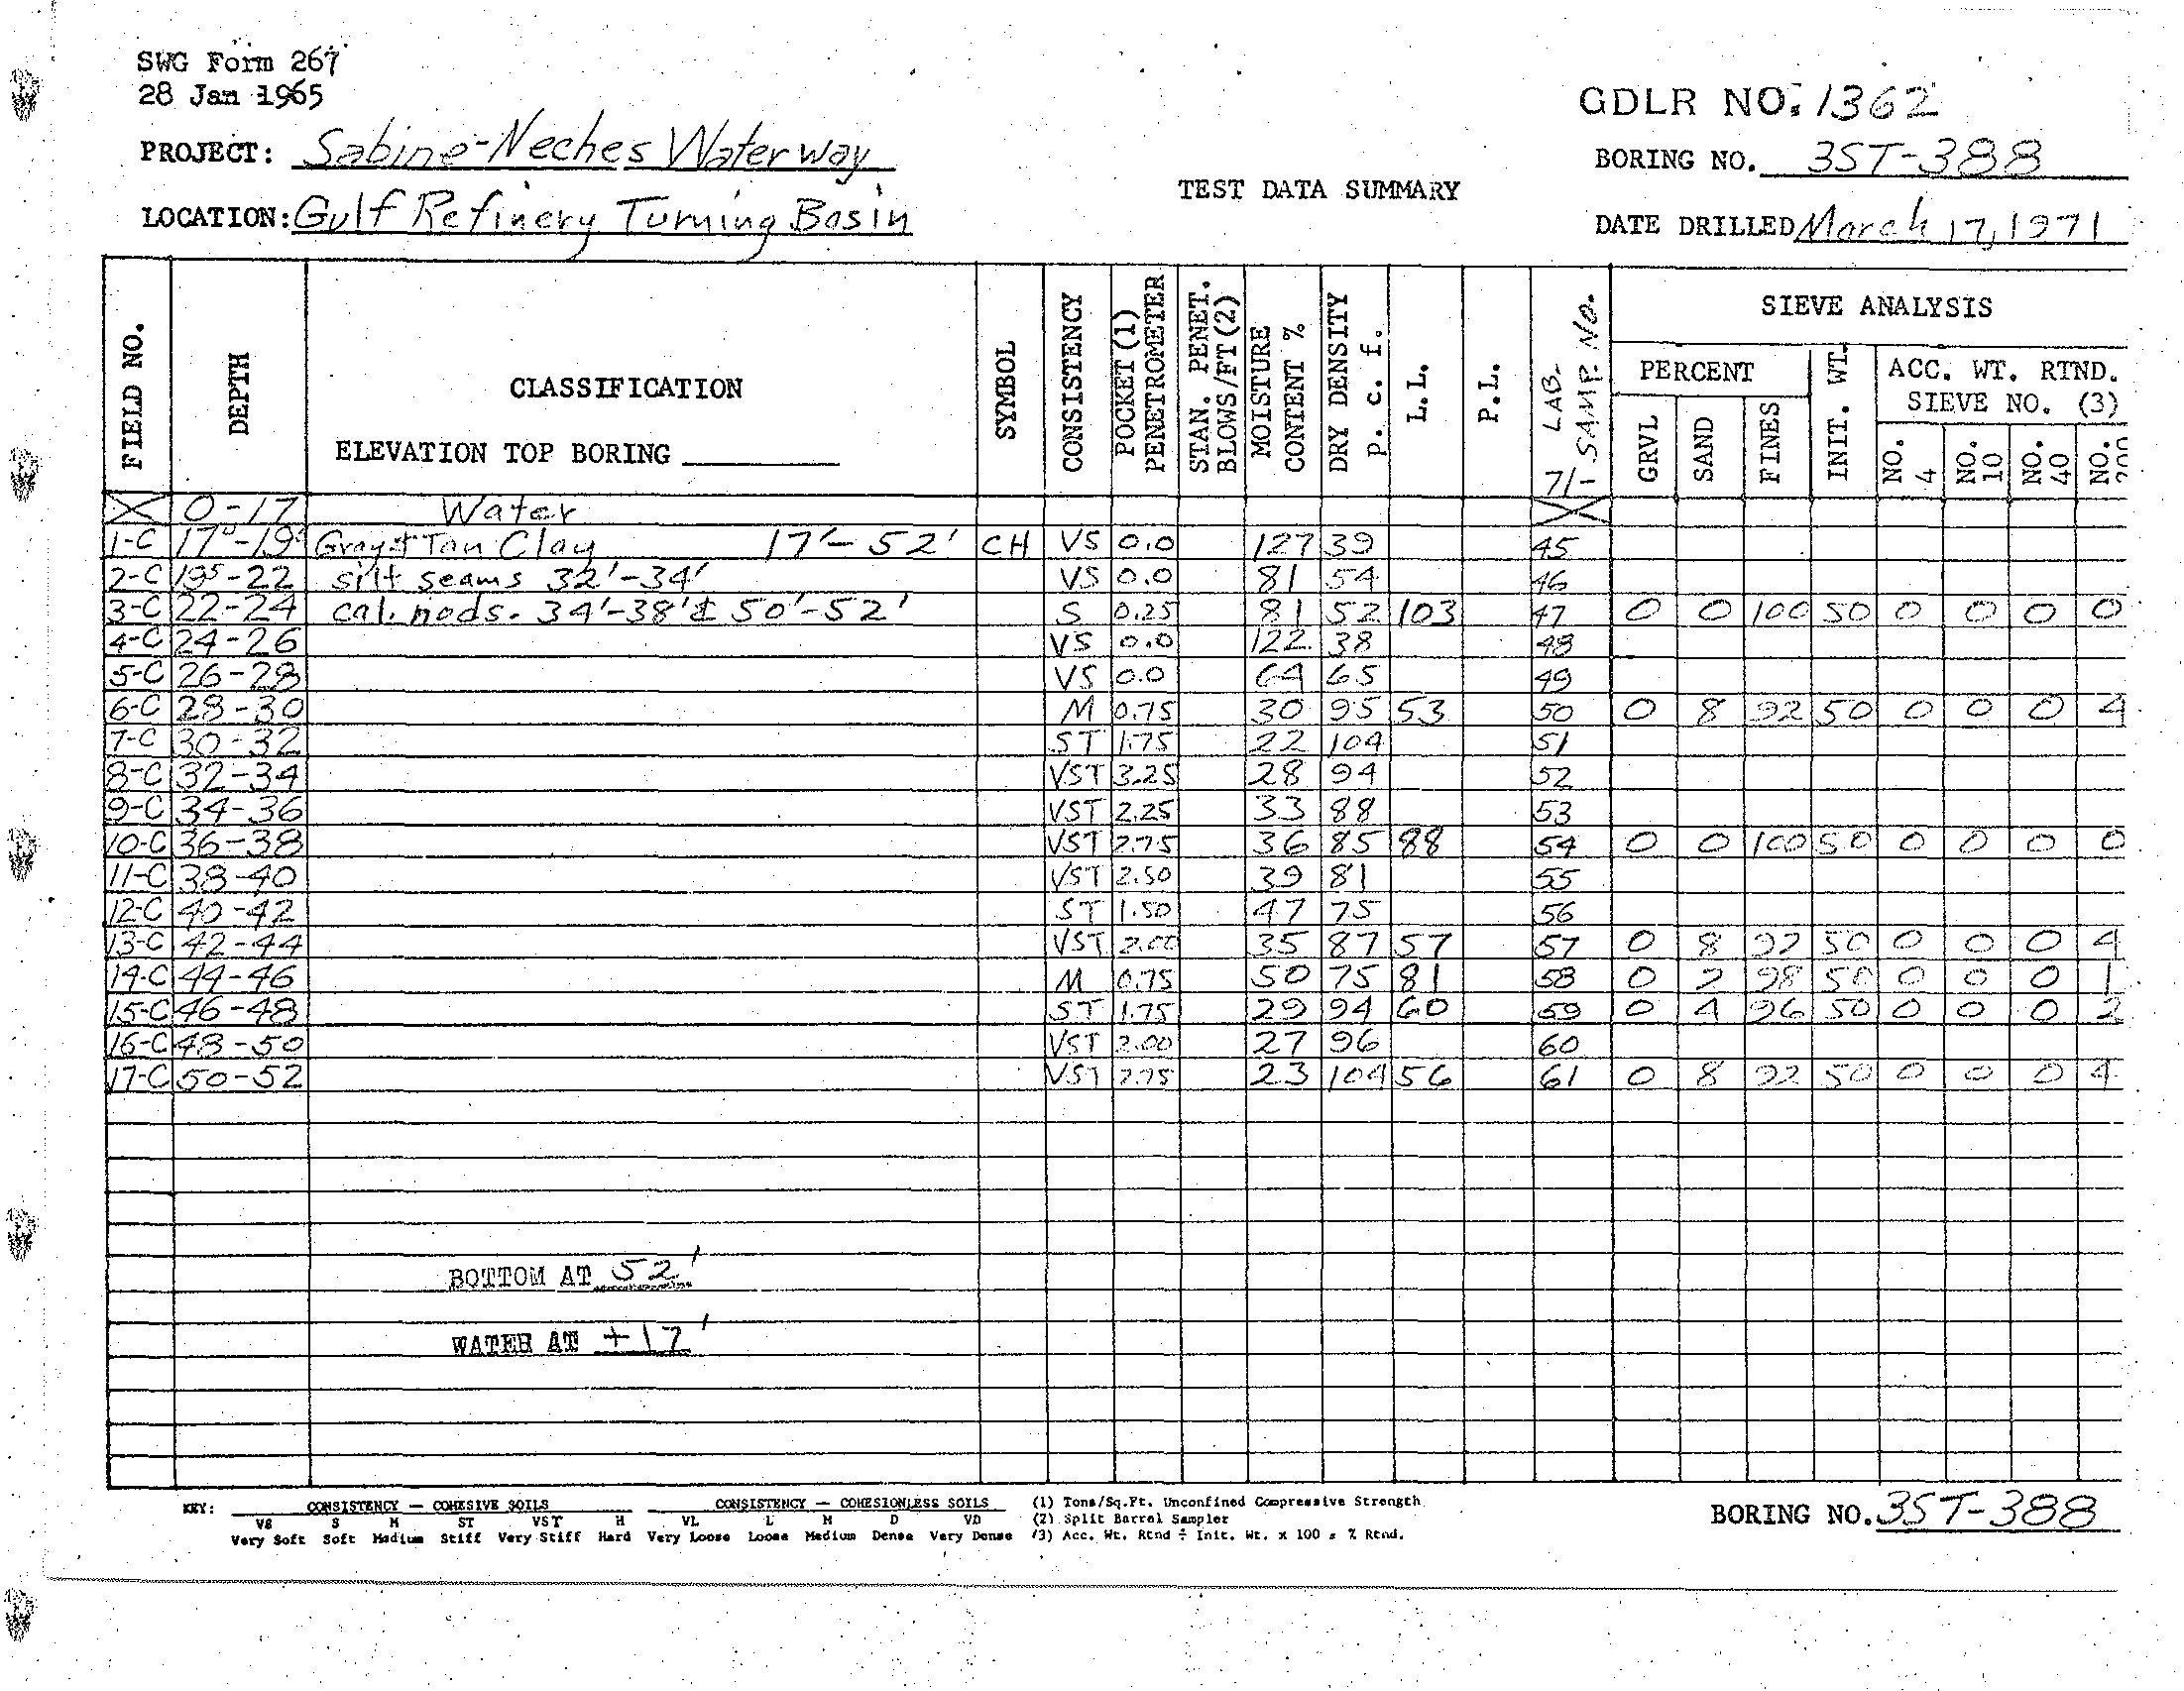 SWG Form 267
28 Jan 1965
GDLR NO. 1362
PROJECT: Sabine-Neches Waterway
BORING NO. 3ST-388
TEST DATA SUMMARY
LOCATION: Gulf Refinery Turning Basin
DATE DRILLED March 17, 1971
FIELD NO. DEPTH CLASSIFICATION SYMBOL CONSISTENCY POCKET (1) PENETROMETER STAN. PENET. BLOWS/FT (2) MOISTURE CONTENT % DRY DENSITY p. c. f. L.L. P.L. LAB. SAMP. No. 71- SIEVE ANALYSIS
PERCENT INIT. WT. ACC. WT. RTND. SIEVE NO. (3)
ELEVATION TOP BORING
GRVL SAND FINES NO. 4 NO. 10 NO. 40 NO. 200
X 0-17 Water X
1-C 17⁰-19⁵ Gray & Tan Clay 17'-52' CH VS 0.0 127 39 45
2-C 19⁵-22 silt seams 32'-34' VS 0.0 81 54 46
3-C 22-24 cal. nods. 34'-38' & 50'-52' S 0.25 81 52 103 47 0 0 100 50 0 0 0 0
4-C 24-26 VS 0.0 122 38 48
5-C 26-28 VS 0.0 64 65 49
6-C 28-30 M 0.75 30 95 53 50 0 8 92 50 0 0 0 4
7-C 30-32 ST 1.75 22 104 51
8-C 32-34 VST 3.25 28 94 52
9-C 34-36 VST 2.25 33 88 53
10-C 36-38 VST 2.75 36 85 88 54 0 0 100 50 0 0 0 0
11-C 38-40 VST 2.50 39 81 55
12-C 40-42 ST 1.50 47 75 56
13-C 42-44 VST 2.00 35 87 57 57 0 8 92 50 0 0 0 4
14-C 44-46 M 0.75 50 75 81 58 0 2 98 50 0 0 0 1
15-C 46-48 ST 1.75 29 94 60 59 0 4 96 50 0 0 0 2
16-C 48-50 VST 2.00 27 96 60
17-C 50-52 VST 2.75 23 104 56 61 0 8 92 50 0 0 0 4
BOTTOM AT 52'
WATER AT +17'
KEY: CONSISTENCY — COHESIVE SOILS CONSISTENCY — COHESIONLESS SOILS (1) Tons/Sq.Ft. Unconfined Compressive Strength
BORING NO. 3ST-388
VS S M ST VST H VL L M D VD (2) Split Barrel Sampler
Very Soft Soft Medium Stiff Very Stiff Hard Very Loose Loose Medium Dense Very Dense (3) Acc. Wt. Rtnd ÷ Init. Wt. x 100 = % Rtnd.